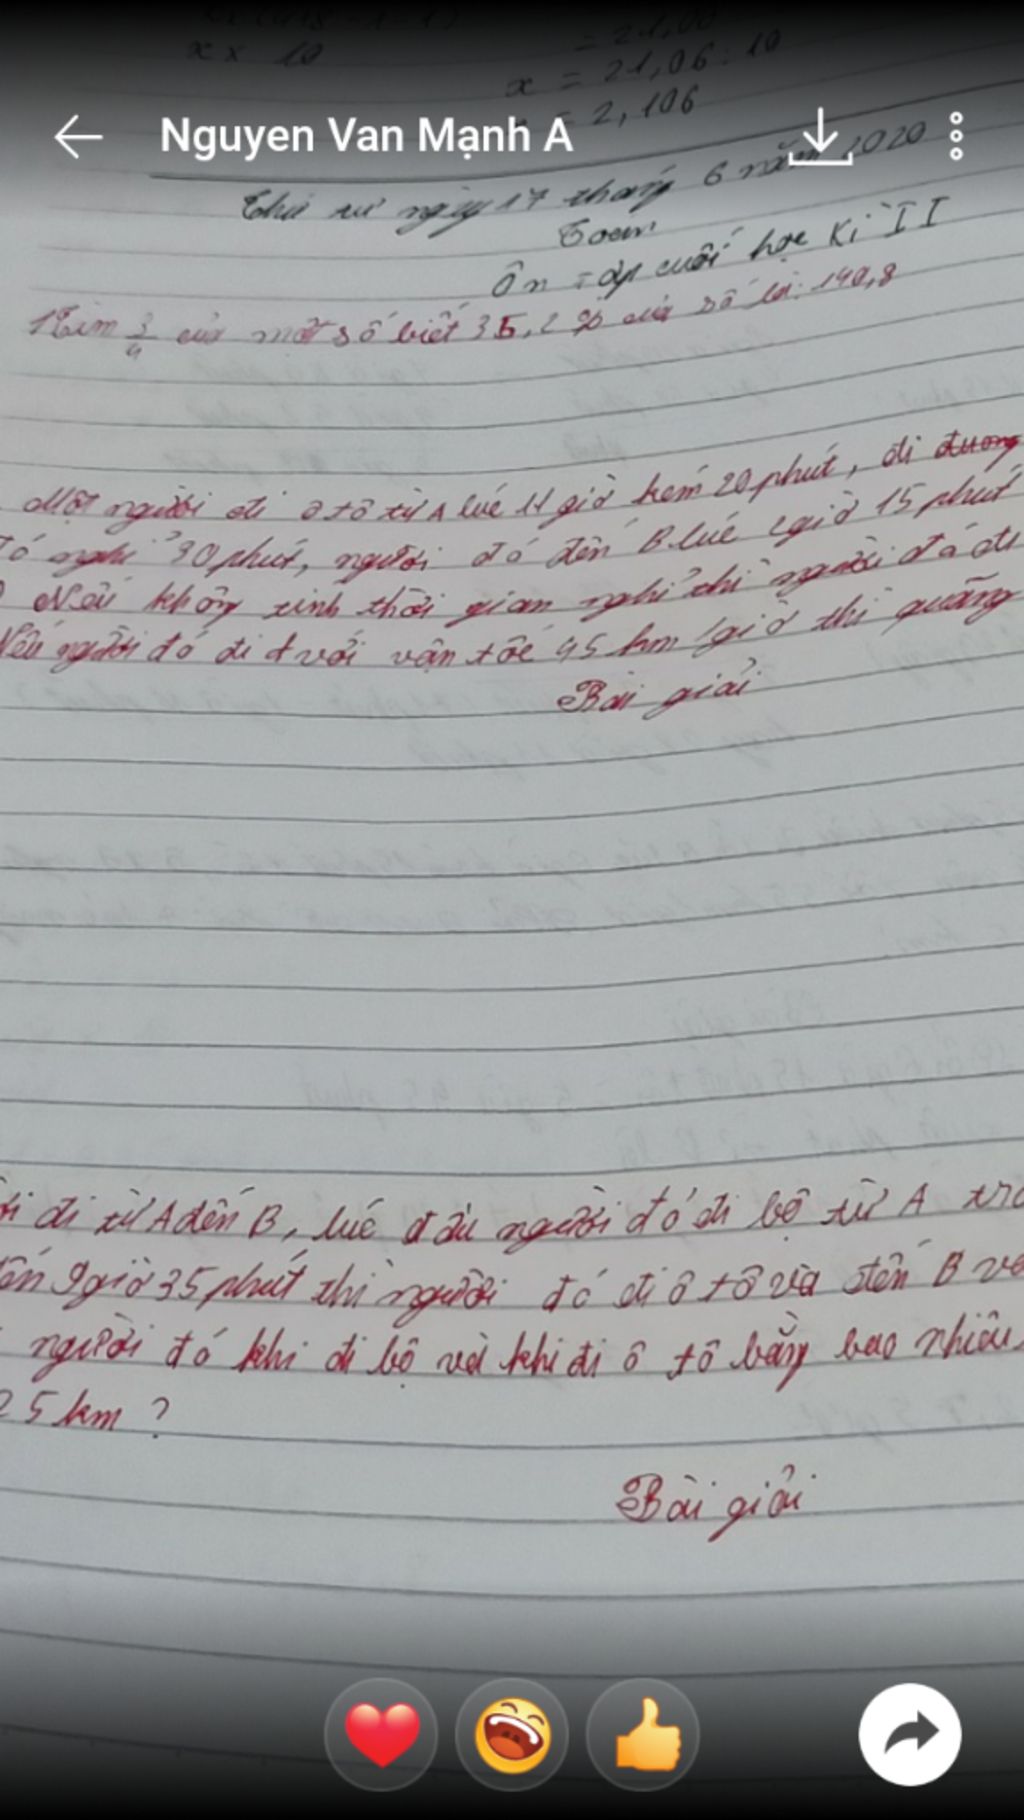 x x 10
= 21,06
x = 21,06 : 10
= 2,106
Nguyen Van Mạnh A
Thứ tư ngày 17 tháng 6 năm 2020
Toán
Ôn tập cuối học Kì II
Tìm 3/4 của một số biết 35,2 % của số là: 140,8
Một người đi ô tô từ A lúc 11 giờ kém 20 phút, đi
đó nghỉ 30 phút, người đó đến B lúc giờ 15 phút
Nếu không tính thời gian nghỉ thì người đó đi
Nếu người đó đi với vận tốc 45 km/giờ thì quãng
Bài giải
đi từ A đến B, lúc đầu người đó đi bộ từ A
đến 9 giờ 35 phút thì người đó đi ô tô và đến B
người đó khi đi bộ và khi đi ô tô bằng bao nhiêu
25 km ?
Bài giải